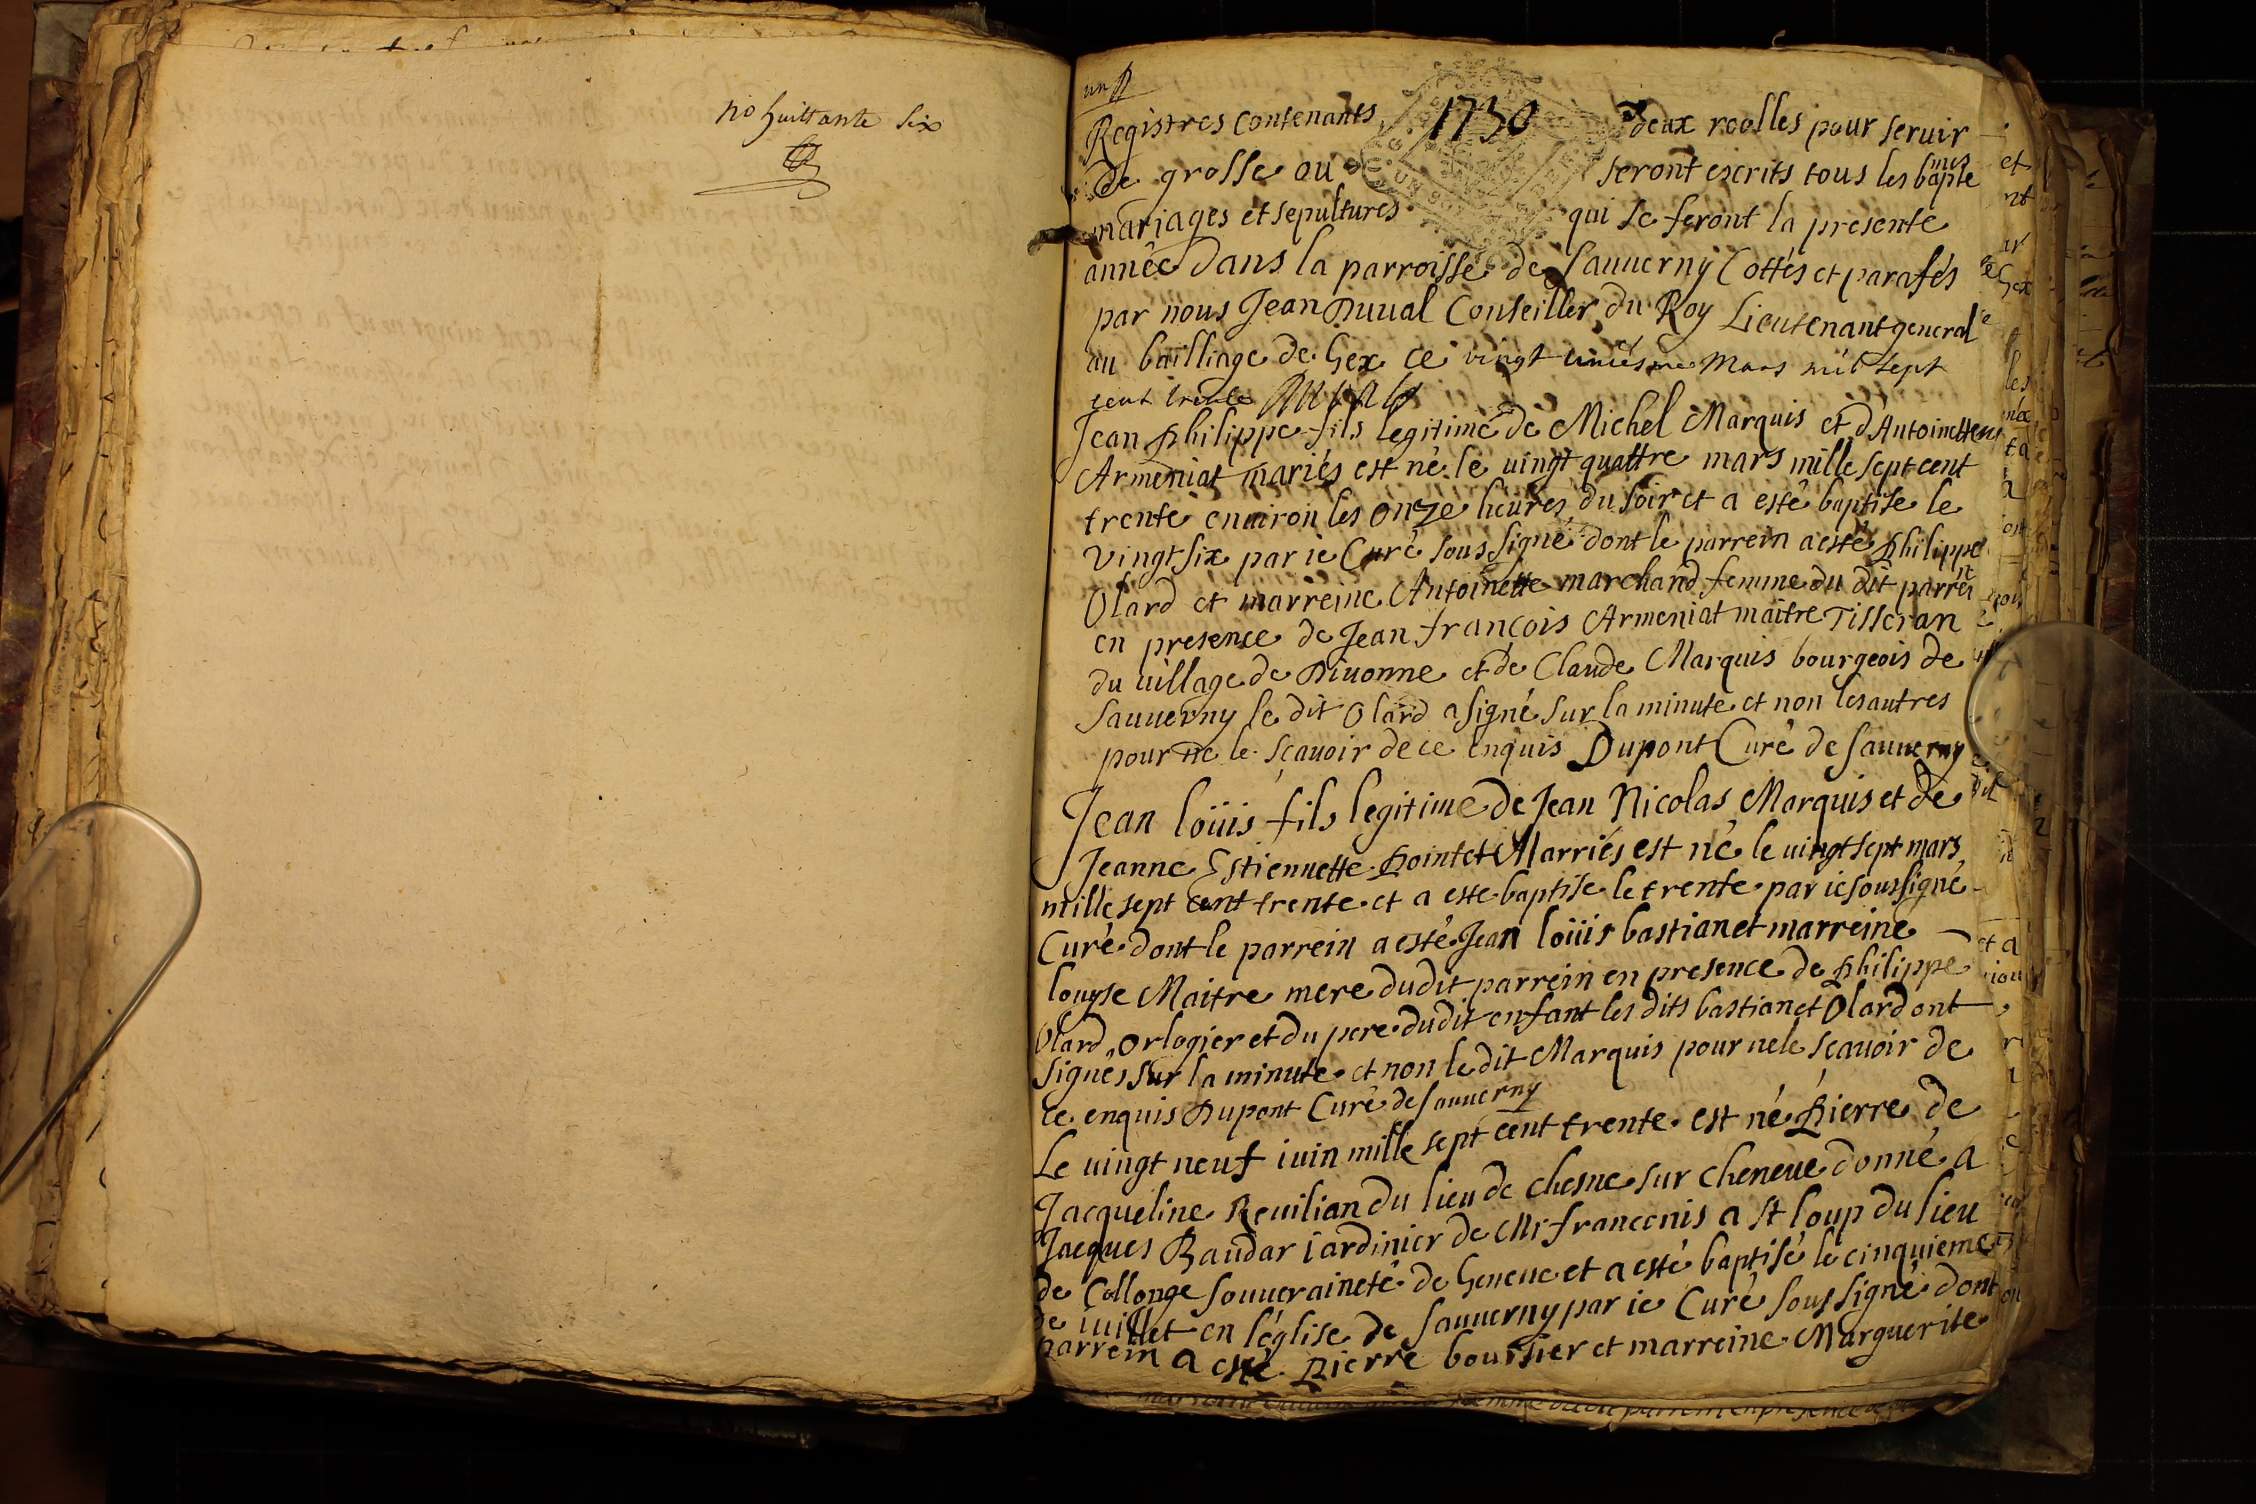 no huittante six
un
1730
Registres contenants deux roolles pour seruir
de grosse ou seront escrits tous les baptemes
mariages et sepultures qui se feront la presente
année dans la parroisse de Sauuerny Cottés et parafés
par nous Jean Duual Conseiller du Roy Lieutenant general
au bailliage de Gex ce vingt uniesme Mars mil sept
cent trente Duual
Jean Philippe fils legitime de Michel Marquis et d'Antoinette
Armeniat mariés est né le uingt quattre mars mille sept cent
trente enuiron les onze heures du soir et a esté baptise le
vingt six par ie Curé sous signé dont le parrein a esté Philippe
Olard et marreine Antoinette marchand femme du dit parrein
en presence de Jean françois Armeniat maitre Tisseran
du uillage de Diuonne et de Claude Marquis bourgeois de
Sauuerny le dit Olard a signé sur la minute et non les autres
pour ne le sçauoir de ce enquis Dupont Curé de Sauuerny
Jean loüis fils legitime de Jean Nicolas Marquis et de
Jeanne Estiennette Pointet Marriés est né le uingt sept mars
mille sept cent trente et a esté baptise le trente par ie soussigné
Curé dont le parrein a esté Jean loüis bastian et marreine
louyse Maitre mere dudit parrein en presence de Philippe
Olard Orlogier et du pere dudit enfant les dits bastian et Olard ont
signés sur la minute et non le dit Marquis pour ne le sçauoir de
ce enquis Dupont Curé de Sauuerny
Le uingt neuf iuin mille sept cent trente est né Pierre de
Jacqueline Reuilian du lieu de chesne sur cheneue donné a
Jacques Baudar iardinier de Mr franconis a St loup du lieu
de Collonge souueraineté de Geneue et a esté baptisé le cinquieme
de iuillet en l'église de Sauuerny par ie Curé sous signé dont
parrein a esté Pierre boursier et marreine Marguerite